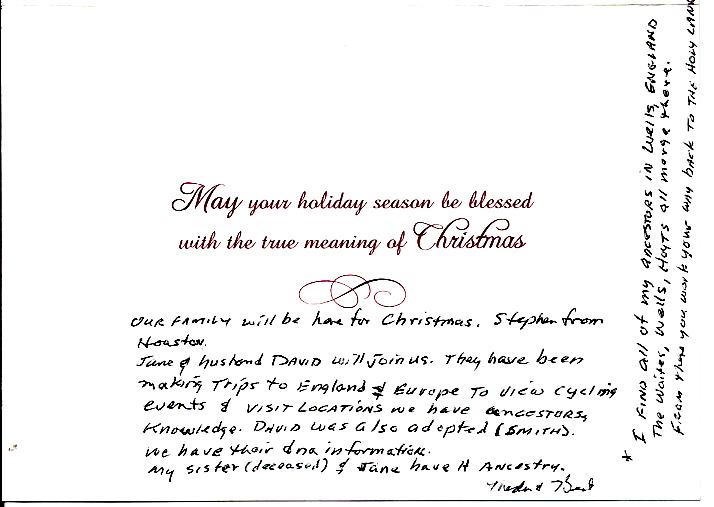 May your holiday season be blessed
with the true meaning of Christmas
OUR FAMILY will be here for Christmas. Stephen from
Houston.
Jane & husband DAVID will join us. They have been
making Trips to England & Europe To view cycling
events & VISIT LOCATIONS we have ancestors
Knowledge. DAVID was also adopted (SMITH).
we have their dna information.
My sister (deceased) & Jane have H Ancestry.
* I FIND all of my ancestors in Wells, ENGLAND
The Waites, Wells, Hoyts all merge there.
From there you work your way back to THE HOLY LAND